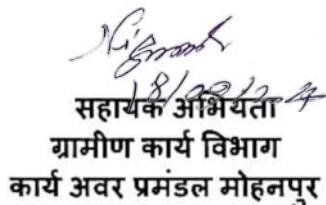 सहायक अभियंता
ग्रामीण कार्य विभाग
कार्य अवर प्रमंडल मोहनपुर